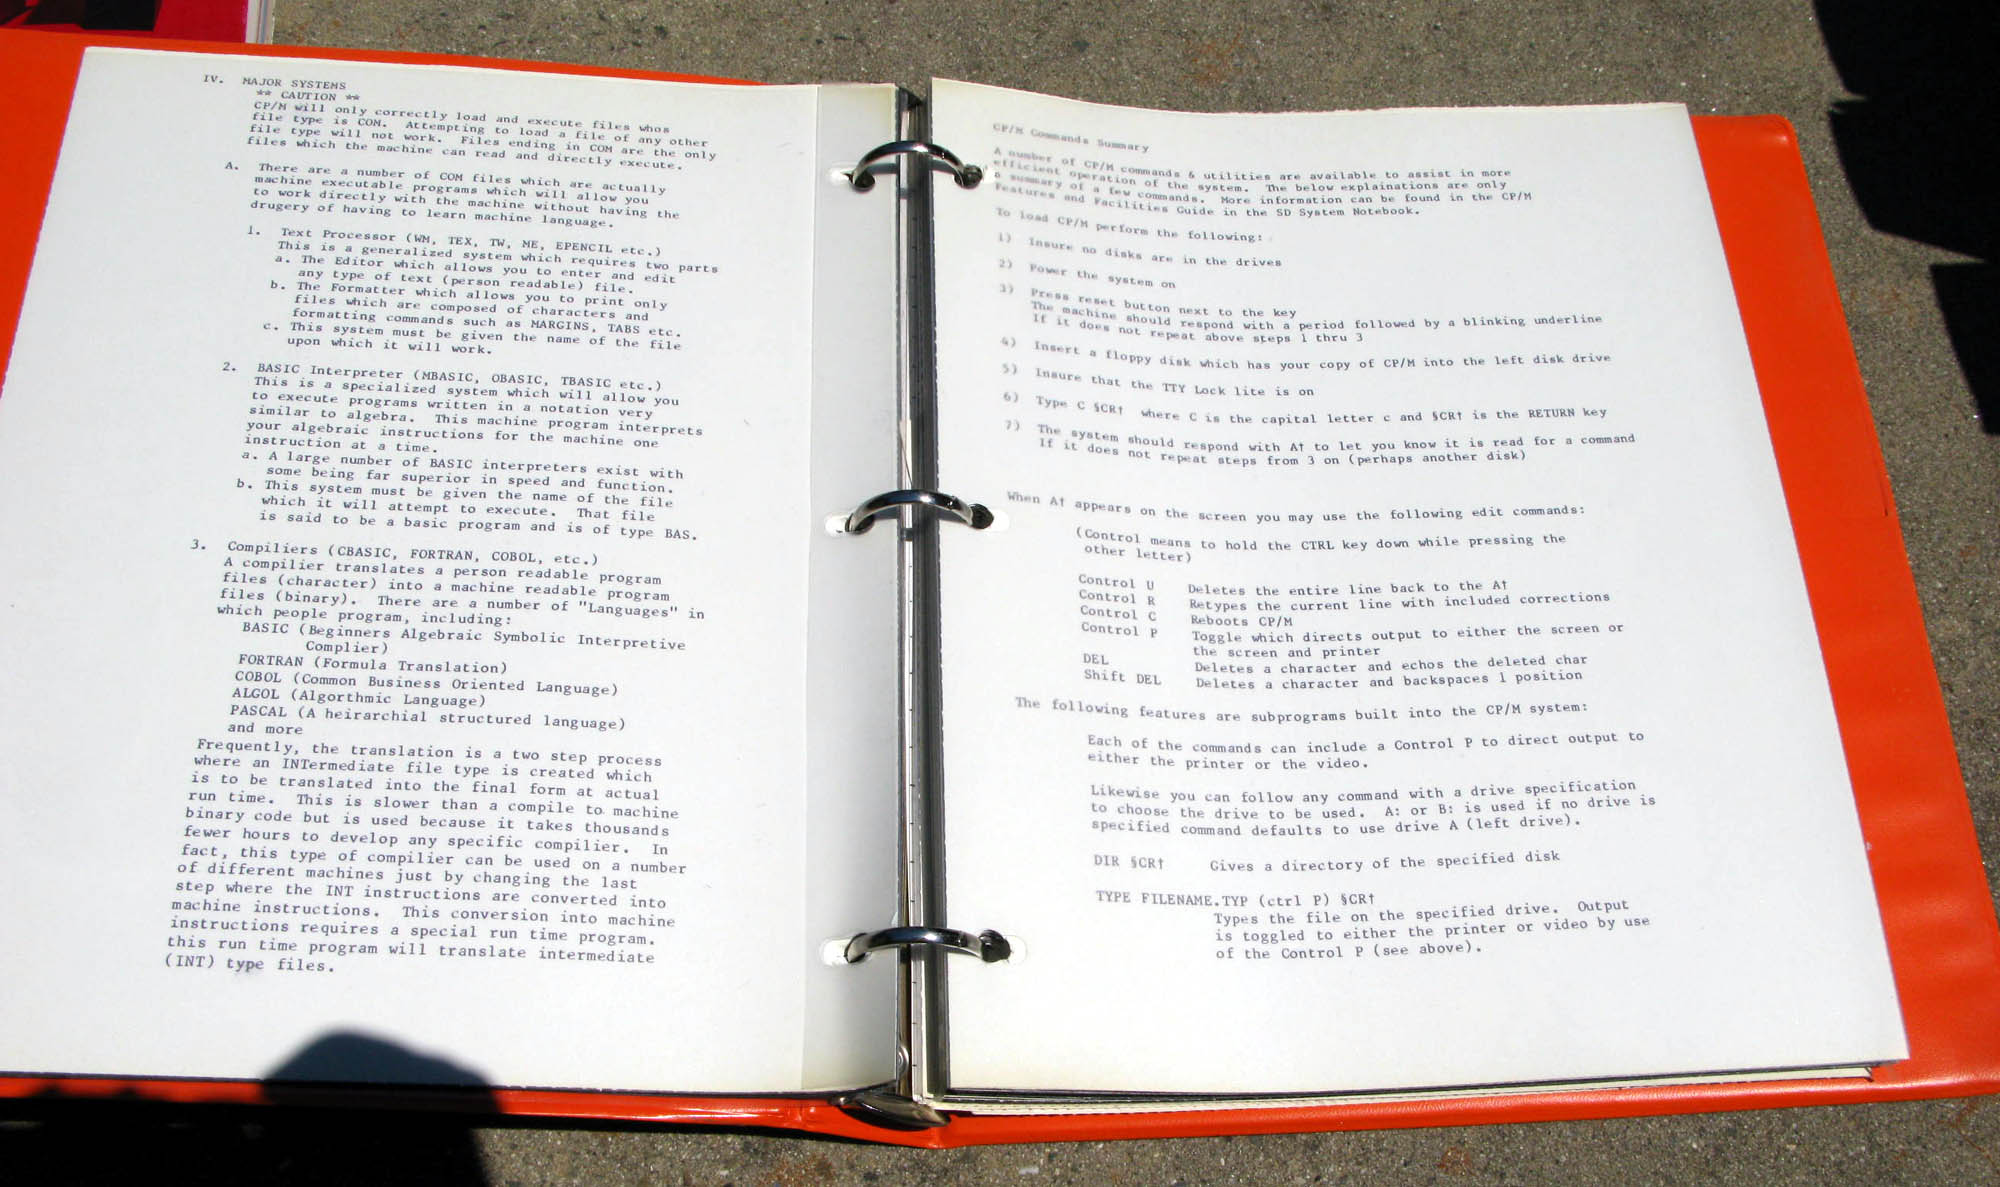 IV. MAJOR SYSTEMS
** CAUTION **
CP/M will only correctly load and execute files whos
file type is COM. Attempting to load a file of any other
file type will not work. Files ending in COM are the only
files which the machine can read and directly execute.
A. There are a number of COM files which are actually
machine executable programs which will allow you
to work directly with the machine without having the
drugery of having to learn machine language.
1. Text Processor (WM, TEX, TW, ME, EPENCIL etc.)
This is a generalized system which requires two parts
a. The Editor which allows you to enter and edit
any type of text (person readable) file.
b. The Formatter which allows you to print only
files which are composed of characters and
formatting commands such as MARGINS, TABS etc.
c. This system must be given the name of the file
upon which it will work.
2. BASIC Interpreter (MBASIC, OBASIC, TBASIC etc.)
This is a specialized system which will allow you
to execute programs written in a notation very
similar to algebra. This machine program interprets
your algebraic instructions for the machine one
instruction at a time.
a. A large number of BASIC interpreters exist with
some being far superior in speed and function.
b. This system must be given the name of the file
which it will attempt to execute. That file
is said to be a basic program and is of type BAS.
3. Compiliers (CBASIC, FORTRAN, COBOL, etc.)
A compilier translates a person readable program
files (character) into a machine readable program
files (binary). There are a number of "Languages" in
which people program, including:
BASIC (Beginners Algebraic Symbolic Interpretive
Complier)
FORTRAN (Formula Translation)
COBOL (Common Business Oriented Language)
ALGOL (Algorthmic Language)
PASCAL (A heirarchial structured language)
and more
Frequently, the translation is a two step process
where an INTermediate file type is created which
is to be translated into the final form at actual
run time. This is slower than a compile to machine
binary code but is used because it takes thousands
fewer hours to develop any specific compilier. In
fact, this type of compilier can be used on a number
of different machines just by changing the last
step where the INT instructions are converted into
machine instructions. This conversion into machine
instructions requires a special run time program.
this run time program will translate intermediate
(INT) type files.
CP/M Commands Summary
A number of CP/M commands & utilities are available to assist in more
efficient operation of the system. The below explainations are only
a summary of a few commands. More information can be found in the CP/M
Features and Facilities Guide in the SD System Notebook.
To load CP/M perform the following:
1) Insure no disks are in the drives
2) Power the system on
3) Press reset button next to the key
The machine should respond with a period followed by a blinking underline
If it does not repeat above steps 1 thru 3
4) Insert a floppy disk which has your copy of CP/M into the left disk drive
5) Insure that the TTY Lock lite is on
6) Type C §CR† where C is the capital letter c and §CR† is the RETURN key
7) The system should respond with A† to let you know it is read for a command
If it does not repeat steps from 3 on (perhaps another disk)
When A† appears on the screen you may use the following edit commands:
(Control means to hold the CTRL key down while pressing the
other letter)
Control U Deletes the entire line back to the A†
Control R Retypes the current line with included corrections
Control C Reboots CP/M
Control P Toggle which directs output to either the screen or
the screen and printer
DEL Deletes a character and echos the deleted char
Shift DEL Deletes a character and backspaces 1 position
The following features are subprograms built into the CP/M system:
Each of the commands can include a Control P to direct output to
either the printer or the video.
Likewise you can follow any command with a drive specification
to choose the drive to be used. A: or B: is used if no drive is
specified command defaults to use drive A (left drive).
DIR §CR† Gives a directory of the specified disk
TYPE FILENAME.TYP (ctrl P) §CR†
Types the file on the specified drive. Output
is toggled to either the printer or video by use
of the Control P (see above).